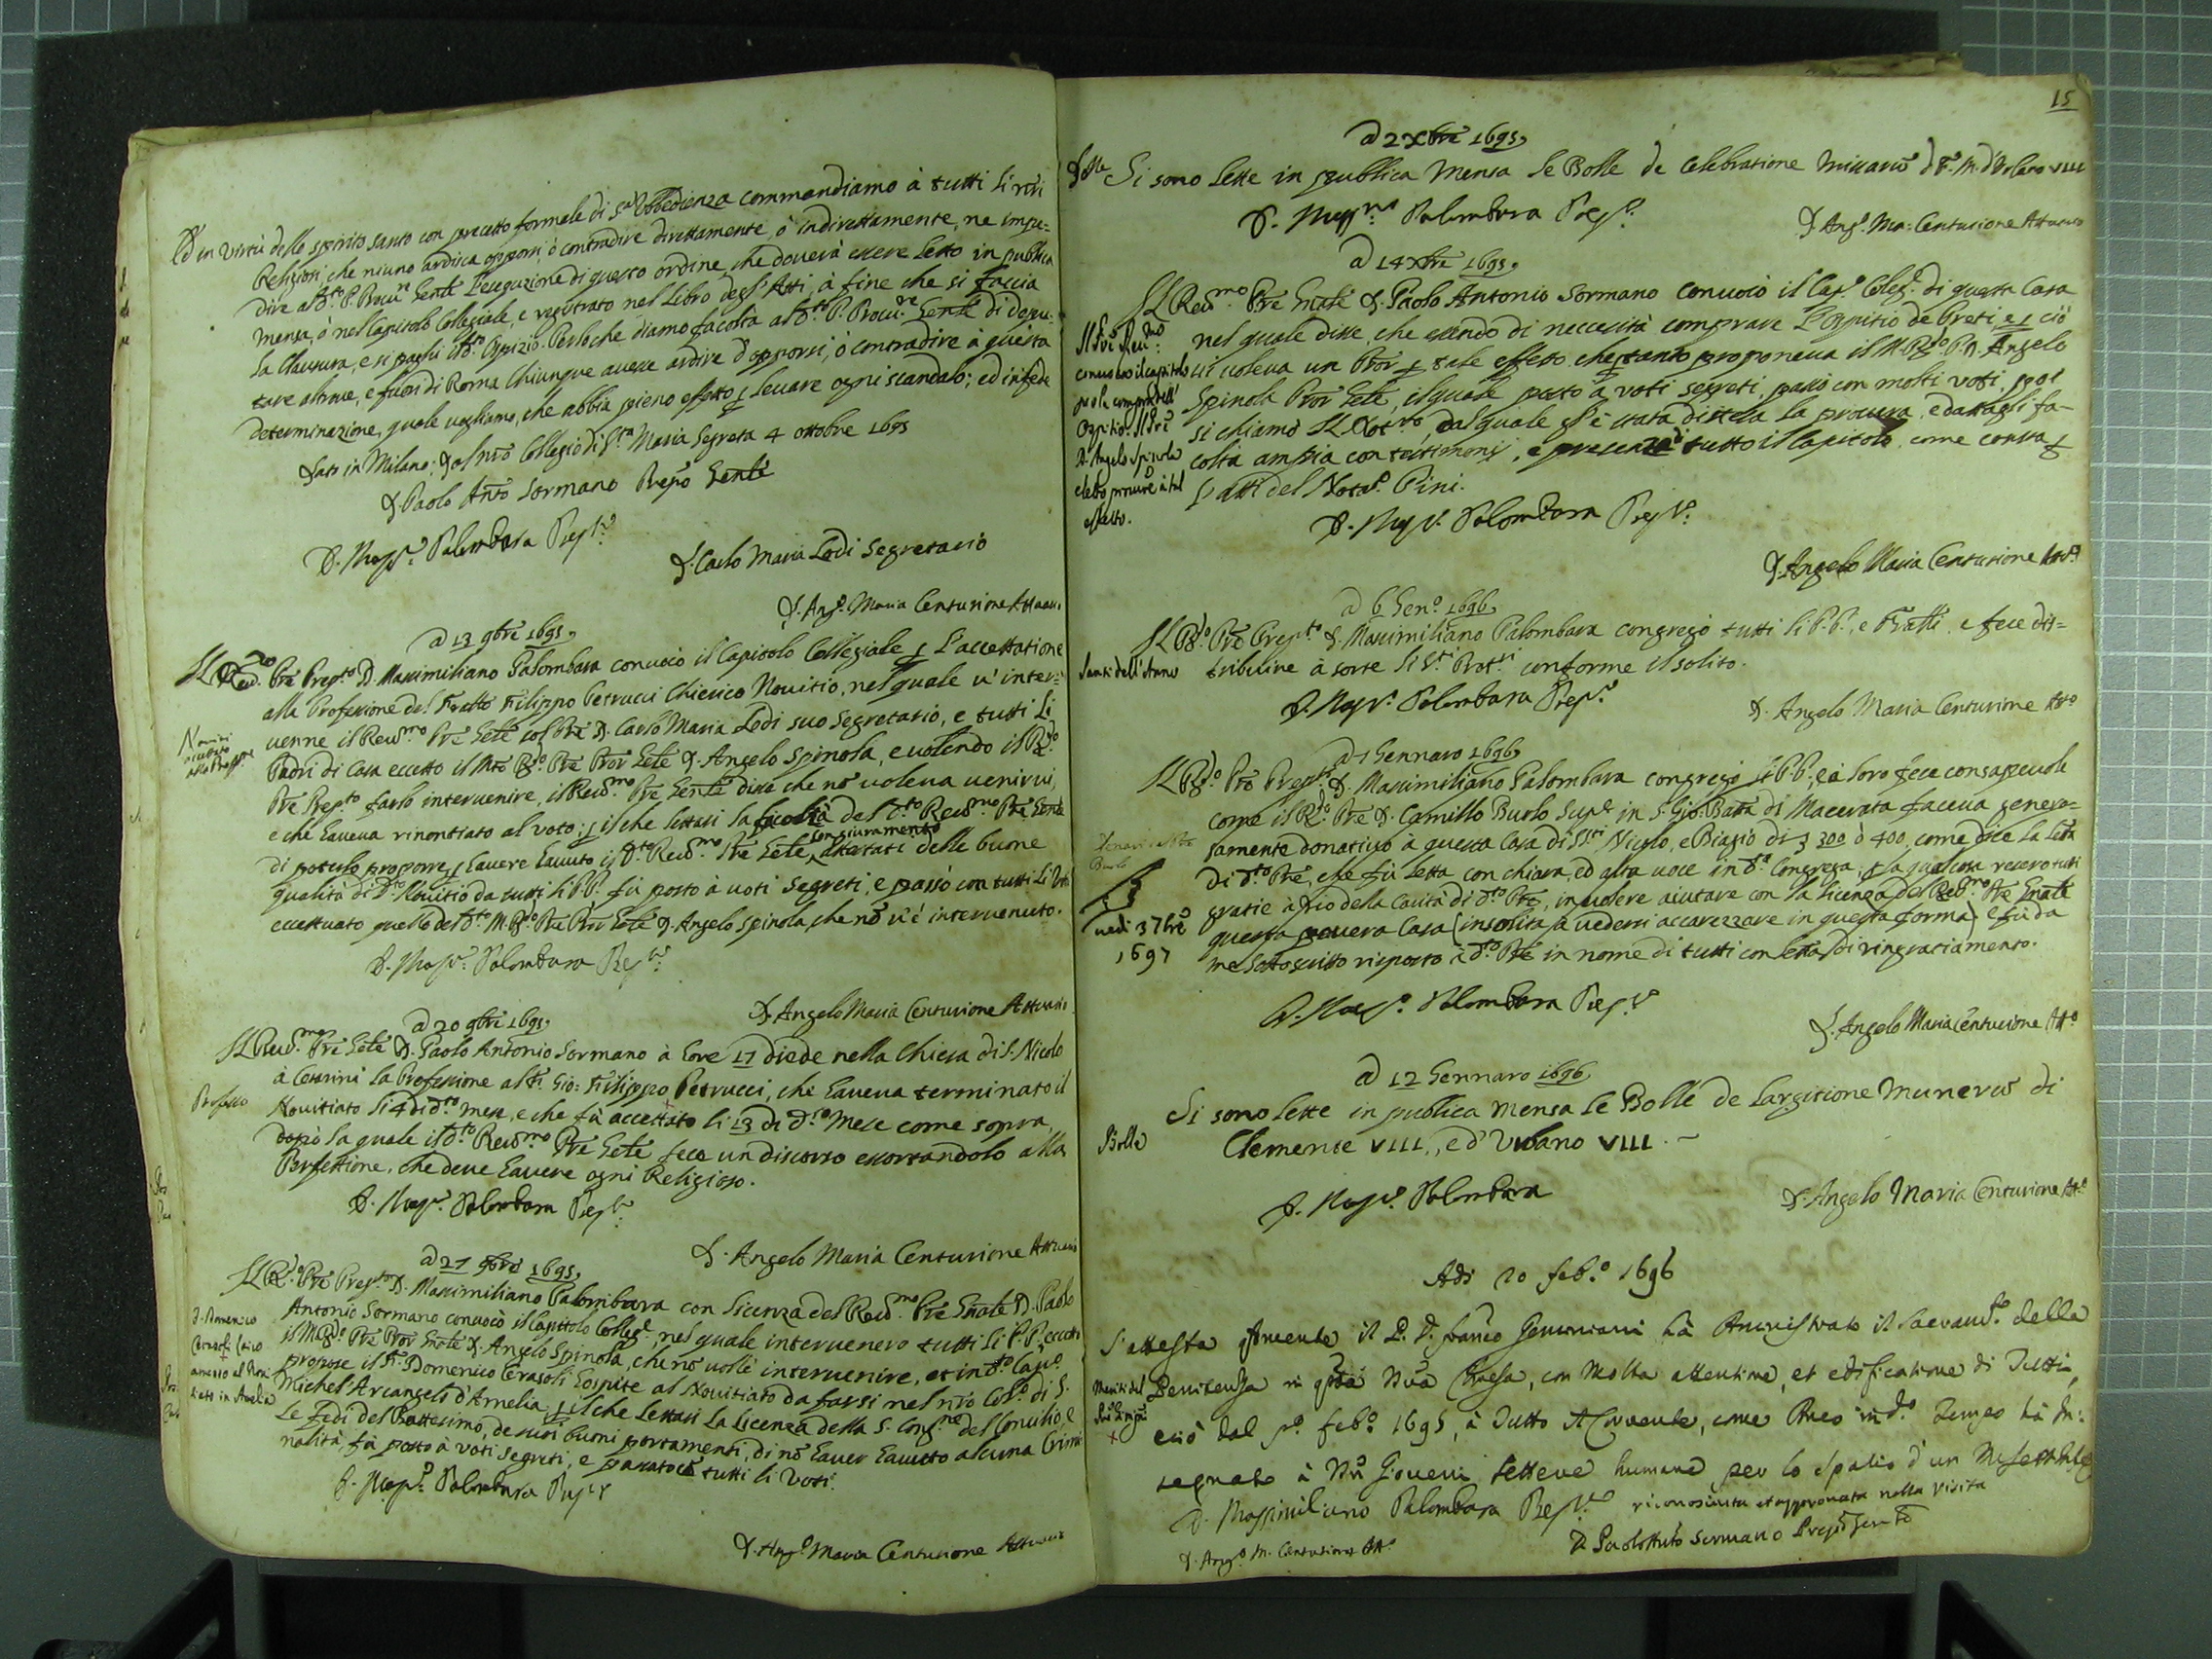 Ed in virtù dello spirito santo con precetto formale di S.ta Ubbedienza commandiamo à tutti li nri
Religiosi, che niuno ardisca opporsi, ò contradire direttamente, ò indirettamente, ne impe=
dire al d.to P. Procu.re Gente l'esequzione di questo ordine, che dovrà essere letto in publica
mensa, ò nel Capitolo Collegiale, e registrato nel Libro degl'Atti, à fine che si faccia
la Clausura, e si paghi il d.to Ospizio. Perloche diamo facoltà al d.to P. Procu.re Gente di depu=
tare altrove, e fuori di Roma chiunque avesse ardire d'opporsi, ò contradire à questa
determinazione, quale vogliamo, che abbia pieno effetto p levare ogni scandalo; ed in fede
Dato in Milano; dal nro Collegio di S.ta Maria Segreta 4 ottobre 1695
D. Paolo Anto Sormano Prepo Gente
D. Mass.o Palombara Prep.to
D. Carlo Maria Lodi Segretario
D. Ang.o Maria Centurione Attuar.
a 13 9bre 1695
Il Rev.do Pre Prep.to D. Massimiliano Palombara convocò il Capitolo Collegiale p l'accettatione
alla Professione del Fratto Filippo Petrucci Chierico Novitio, nel quale v'inter=
venne il Rev.mo Pre Gete col Pre D. Carlo Maria Lodi suo Segretario, e tutti li
Padri di Casa eccetto il Mto R.do Pre Pror Gete D. Angelo Spinola, e volendo il R.do
Pre Prep.to farlo intervenire, il Rev.mo Pre Gente disse che nō voleva venirvi,
e che haveva rinontiato al voto; p il che lettasi la facoltà del d.to Rev.mo Pre Gente
di poterlo proporre, p havere havuto il d.to Rev.mo Pre Gete, con giuramento attestati delle buone
qualità di d.to Novitio da tutti li PP. fù posto à voti segreti, e passò con tutti li voti
eccettuato quello del d.to M. R.do Pre Pror Gete D. Angelo Spinola, che nō v'è intervenuto.
D. Mass.o Palombara Prep.to
D. Angelo Maria Centurione Attuario
a 20 9bre 1695
Il Rev.mo Pre Gete D. Paolo Antonio Sormano à hore 17 diede nella Chiesa di S. Nicolo
Professo
à Cesarini la Professione al Fr. Gio: Filippo Petrucci, che haveva terminato il
Novitiato li 4 di d.to mese, e che fù accettato li 13 di d.to Mese come sopra,
dopò la quale il d.to Rev.mo Pre Gete fece un discorso essortandolo alla
Perfettione, che deve havere ogni Religioso.
D. Mass.o Palombara Prep.to
D. Angelo Maria Centurione Attuario
a 27 9bre 1695
Il R.do Pre Prep.to D. Massimiliano Palombara con licenza del Rev.mo Pre Gnale D. Paolo
Antonio Sormano convocò il Capitolo Colleg.le, nel quale intervenero tutti li P.P. eccetto
il M. R.do Pre Pror Gnale D. Angelo Spinola, che nō volle intervenire, et in d.to Cap.o
propose il Fr. Domenico Cerasoli hospite al Novitiato da farsi nel nro Col.o di S.
Michel'Arcangelo d'Amelia; p il che lettasi la licenza della S. Cong.ne del Concilio, e
le fedi del Battesimo, de suoi buoni portamenti, di nō haver havuto alcuna Crimi
nalità, fù posto à voti segreti, e passato cō tutti li voti.
D. Mass.o Palombara Prep.to
D. Ang.o Maria Centurione Attuario
15
a 2 Xbre 1695
Bolle
Si sono lette in publica Mensa le Bolle de Celebratione missarū d F. M. d'Urbano VIII
D. Mass.no Palombara Prep.o
D. Ang.o Mar: Centurione Attuario
a 14 Xbre 1695
Il Rev.mo Pre Gnale D. Paolo Antonio Sormano convocò il Cap.o Coleg.e di questa Casa
Il Pre Rev.mo convocò il capitolo p la compra dell' Ospitio. Il Pre D. Angelo Spinola eletto procure à tal effetto.
nel quale disse, che essendo di neccessità comprare l'Ospitio de Preti, e p ciò
ci voleva un Pror p tale effetto che p tanto proponeva il M. R.do P. D. Angelo
Spinola Pror Gele, il quale posto à voti segreti, passò con molti voti, poi
si chiamò Il Not.ro, dal quale gl'è stata distesa la procura, e dattagli fa=
coltà ampia con testimonij, e presenza di tutto il Capitolo, come consta p
gl'atti del Nota.o Pini.
D. Mass.o Palombara Prep.to
D. Angelo Maria Centurione Att.o
a 6 Gen.o 1696
Il R.do Pre Prep.to D. Massimiliano Palombara congregò tutti li P.P., e Fratli, e fece dis=
Santi dell'Anno
tribuire à sorte li S.ti Prot.ri conforme il solito.
D. Mass.o Palombara Prep.to
D. Angelo Maria Centurione Att.o
a 7 Gennaro 1696
Il R.do Pre Prep.to D. Massimiliano Palombara congregò li PP., e à loro fece consapevole
come il R.do Pre D. Camillo Burlo Sup.e in S. Gio: Batta di Macerata faceva genero=
samente donativo à questa Casa di SS.ti Nicolo, e Biagio di 300 ò 400, come dice la lra
di d.to Pre, che fù letta con chiara, ed alta voce in d.a Congrega; p la qual cosa resero tutti
vedi 3 7bre 1697
gratie à Dio della Carità di d.to Pre, in volere aiutare con la licenza del Rev.mo Pre Gnale
questa povera Casa (insolita à vedersi accarezzare in questa forma) e fù da
me sottoscritto risposto à d.to Pre in nome di tutti con lettra di ringratiamento.
D. Mass.o Palombara Prep.to
D. Angelo Maria Centurione Att.o
a 12 Gennaro 1696
Si sono lette in publica Mensa le Bolle de Largitione Munerū di
Bolle
Clemente VIII, ed Urbano VIII.
D. Mass.o Palombara
D. Angelo Maria Centurione Att.o
Adi 20 feb.o 1696
S'attesta qmente il P. D. franco Geminiani hà Aministrato il Sacram.to della
Penitenza in qsta Nra Chiesa, con Molta attentione, et edificatione di Tutti,
e ciò dal p.o feb.o 1695, à Tutto il Corrente, come Anco in d.o Tempo hà In:
segnato à Nri Gioveni lettere humane per lo spatio d'un
D. Massimiliano Palombara Prep.to
riconosciuta et approvata nella visita
D. Ang.o M. Centurione Att.o
D. Paolo Anto Sormano Prepo Gen.le